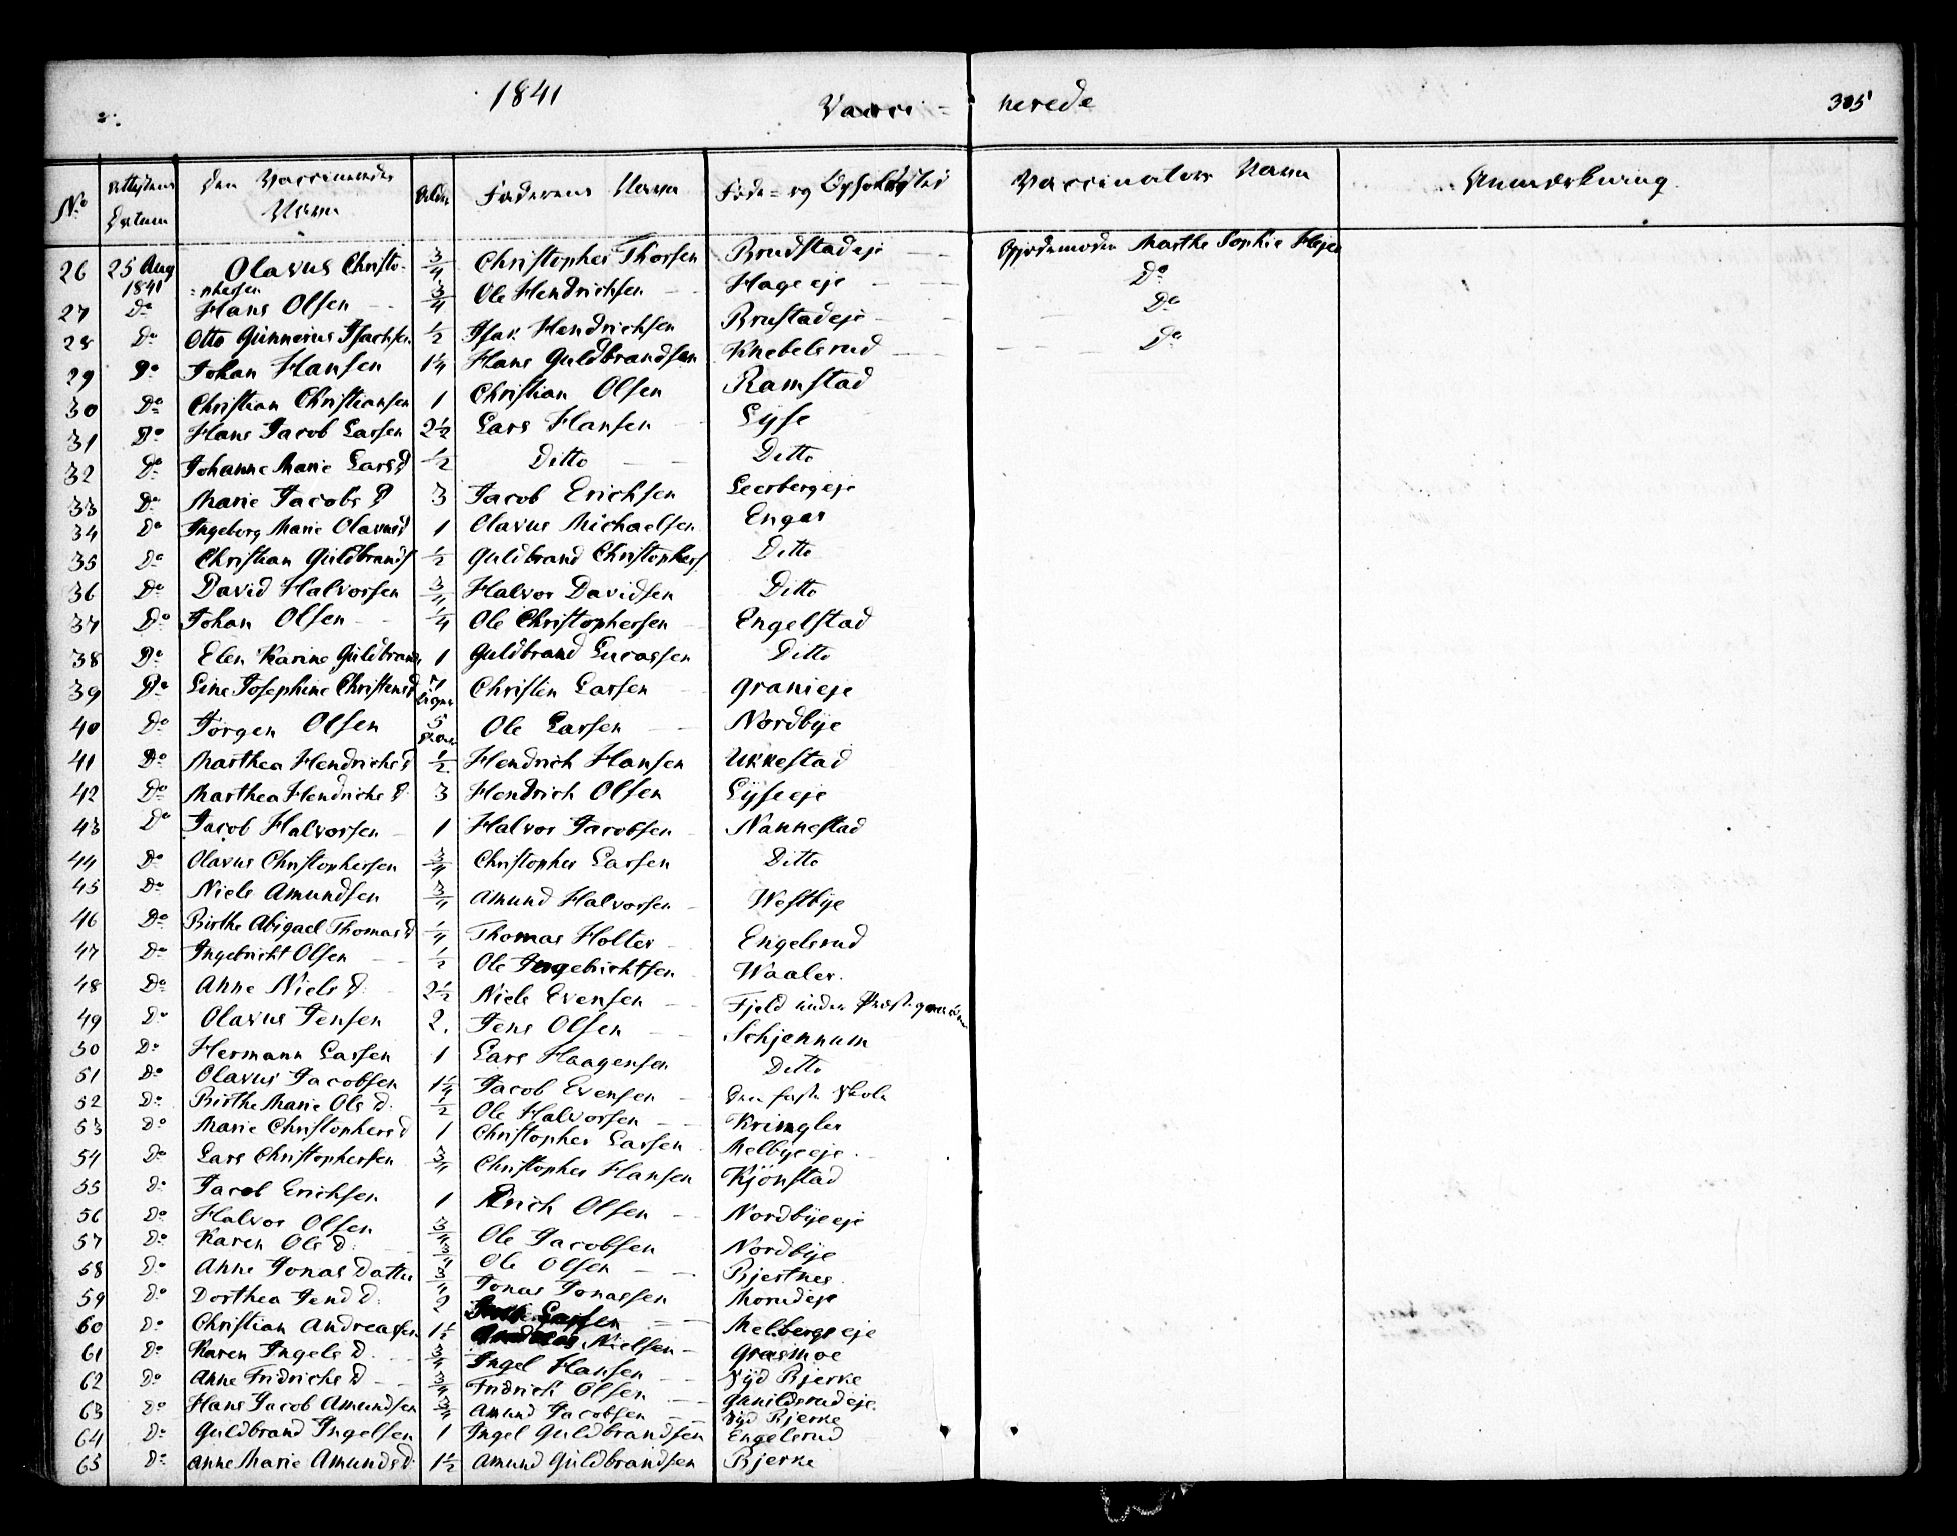 1841
Vacci= nerede 305
No Attestens Datum Den Vaccineredes Navn Alder Faderens Navn Føde= og Opholdssted Vaccinators Navn Anmærkning
26 25 Aug 1841 Olavus Christo=phersen 3/4 Christopher Thorsen Brudstadeje Gjordemoder Marthe Sophie
27 Do Hans Olsen 3/4 Ole Hendrichsen Hageeje Do
28 Do Otto Gunnerius Isachsen 1/2 Isak Hendrichsen Brustadeje Do
29 Do Johan Hansen 1 1/4 Hans Guldbrandsen Knebelsrud Do
30 Do Christian Christiansen 1 Christian Olsen Ramstad
31 Do Hans Jacob Larsen 2 1/2 Lars Hansen Lyse
32 Do Johanne Marie Larsd 1/2 Ditto Ditto
33 Do Marie Jacobs D 3 Jacob Erichsen Leerbergeje
34 Do Ingeborg Marie Olavusd 1 Olavus Michaelsen Enger
35 Do Christian Guldbrands 1/2 Guldbrand Christophers Ditto
36 Do David Halvorsen 3/4 Halvor Davidsen Ditto
37 Do Johan Olsen 1/4 Ole Christophersen Engelstad
38 Do Elen Karine Guldbrands 1 Guldbrand Lucassen Ditto
39 Do Line Josephine Christensd Christen Larsen Granieje
40 Do Jørgen Olsen 5 Ole Larsen Nordbye
41 Do Marthea Hendrichsd 1/2 Hendrich Hansen Ukkestad
42 Do Marthea Hendrichs D 3 Hendrich Olsen Lyseeje
43 Do Jacob Halvorsen 1 Halvor Jacobsen Nannestad
44 Do Olavus Christophersen 3/4 Christopher Larsen Ditto
45 Do Niels Amundsen 3/4 Amund Halvorsen Westbye
46 Do Birthe Abigael Thomasd 1/4 Thomas Holter Engelsrud
47 Do Ingebricht Olsen 1/2 Ole Ingebrichtsen Waaler.
48 Do Anne Niels D 2 1/2 Niels Evensen Fjeld under
49 Do Olavus Jensen 2. Jens Olsen Schjennum
50 Do Hermann Larsen 1 Lars Haagensen Ditto
51 Do Olavus Jacobsen 1 1/4 Jacob Evensen Den faste Skole
52 Do Birthe Marie Ols D. 1/2 Ole Halvorsen Kringler
53 Do Marie Christophersd 1 Christopher Larsen Melbyeeje
54 Do Lars Christophersen 3/4 Christopher Hansen Kjönstad
55 Do Jacob Erichsen 1 Erich Olsen Nordbyeeje
56 Do Halvor Olsen 3/4 Ole Jacobsen Nordbye
57 Do Karen Ols D. 3/4 Ole Olsen Bjertnes
58 Do Anne Jonas Datter 3/4 Jonas Jonassen Morudeje
59 Do Dorthea Jend D. 2 Larsen Melbergs eje
60 Do Christian Andreassen 1 1/2 Andreas Nielsen Grasmoe
61 Do Karen Ingels D. 3/4 Ingel Hansen Syd Bjerke
62 Do Anne Fridrichs D 3/4 Fridrich Olsen Ganildsrudeje.
63 Do Hans Jacob Amundsen 3/4 Amund Jacobsen Syd Bjerke
64 Do Guldbrand Ingelsen 1 Ingel Guldbrandsen Engelsrud
65 Do Anne Marie Amunds D 1 1/2 Amund Guldbrandsen Bjerke